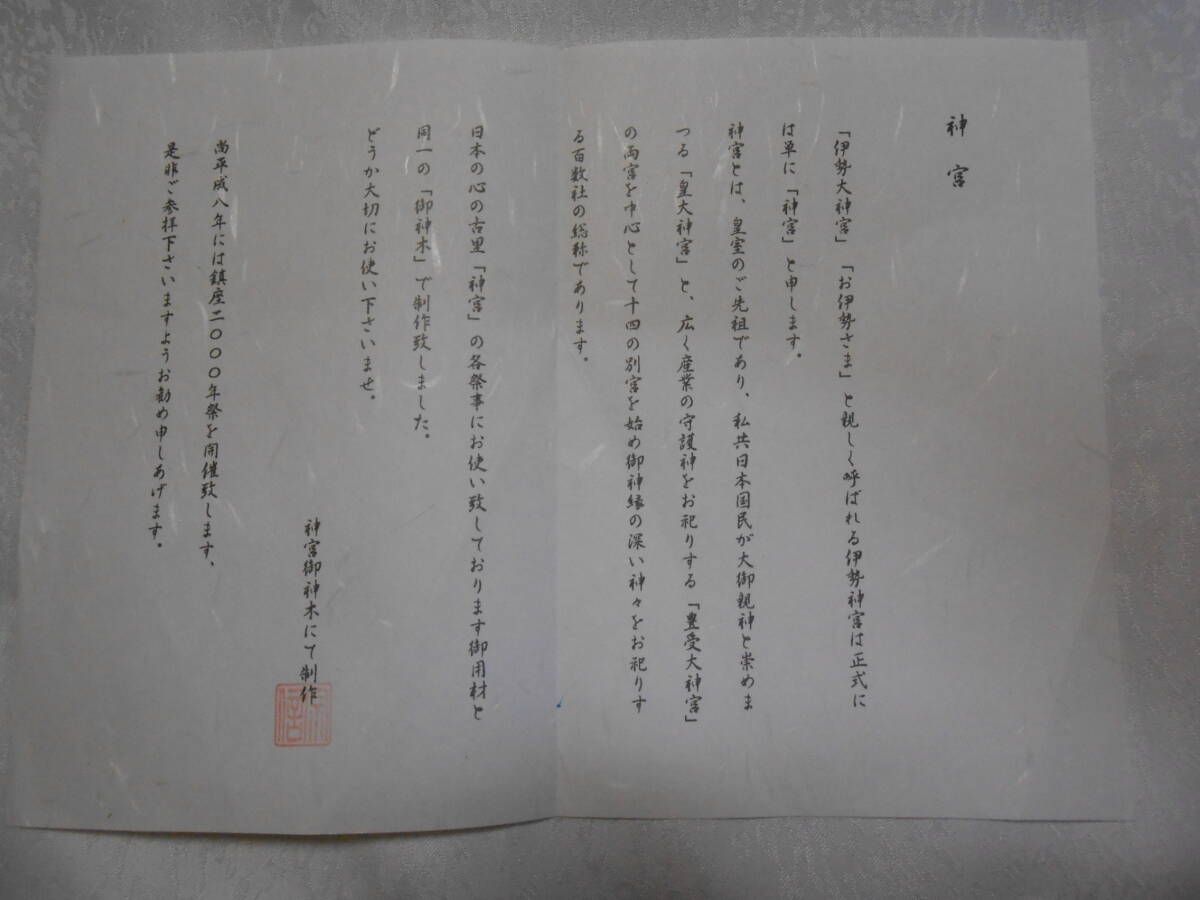 神宮
「伊勢大神宮」「お伊勢さま」と親しく呼ばれる伊勢神宮は正式に
は単に「神宮」と申します。
神宮とは、皇室のご先祖であり、私共日本国民が大御親神と崇めま
つる「皇大神宮」と、広く産業の守護神をお祀りする「豊受大神宮」
の両宮を中心として十四の別宮を始め御神縁の深い神々をお祀りす
る百数社の総称であります。
日本の心の古里「神宮」の各祭事にお使い致しております御用材と
同一の「御神木」で制作致しました。
どうか大切にお使い下さいませ。
神宮御神木にて制作
尚平成八年には鎮座二〇〇〇年祭を開催致します、
是非ご参拝下さいますようお勧め申しあげます。